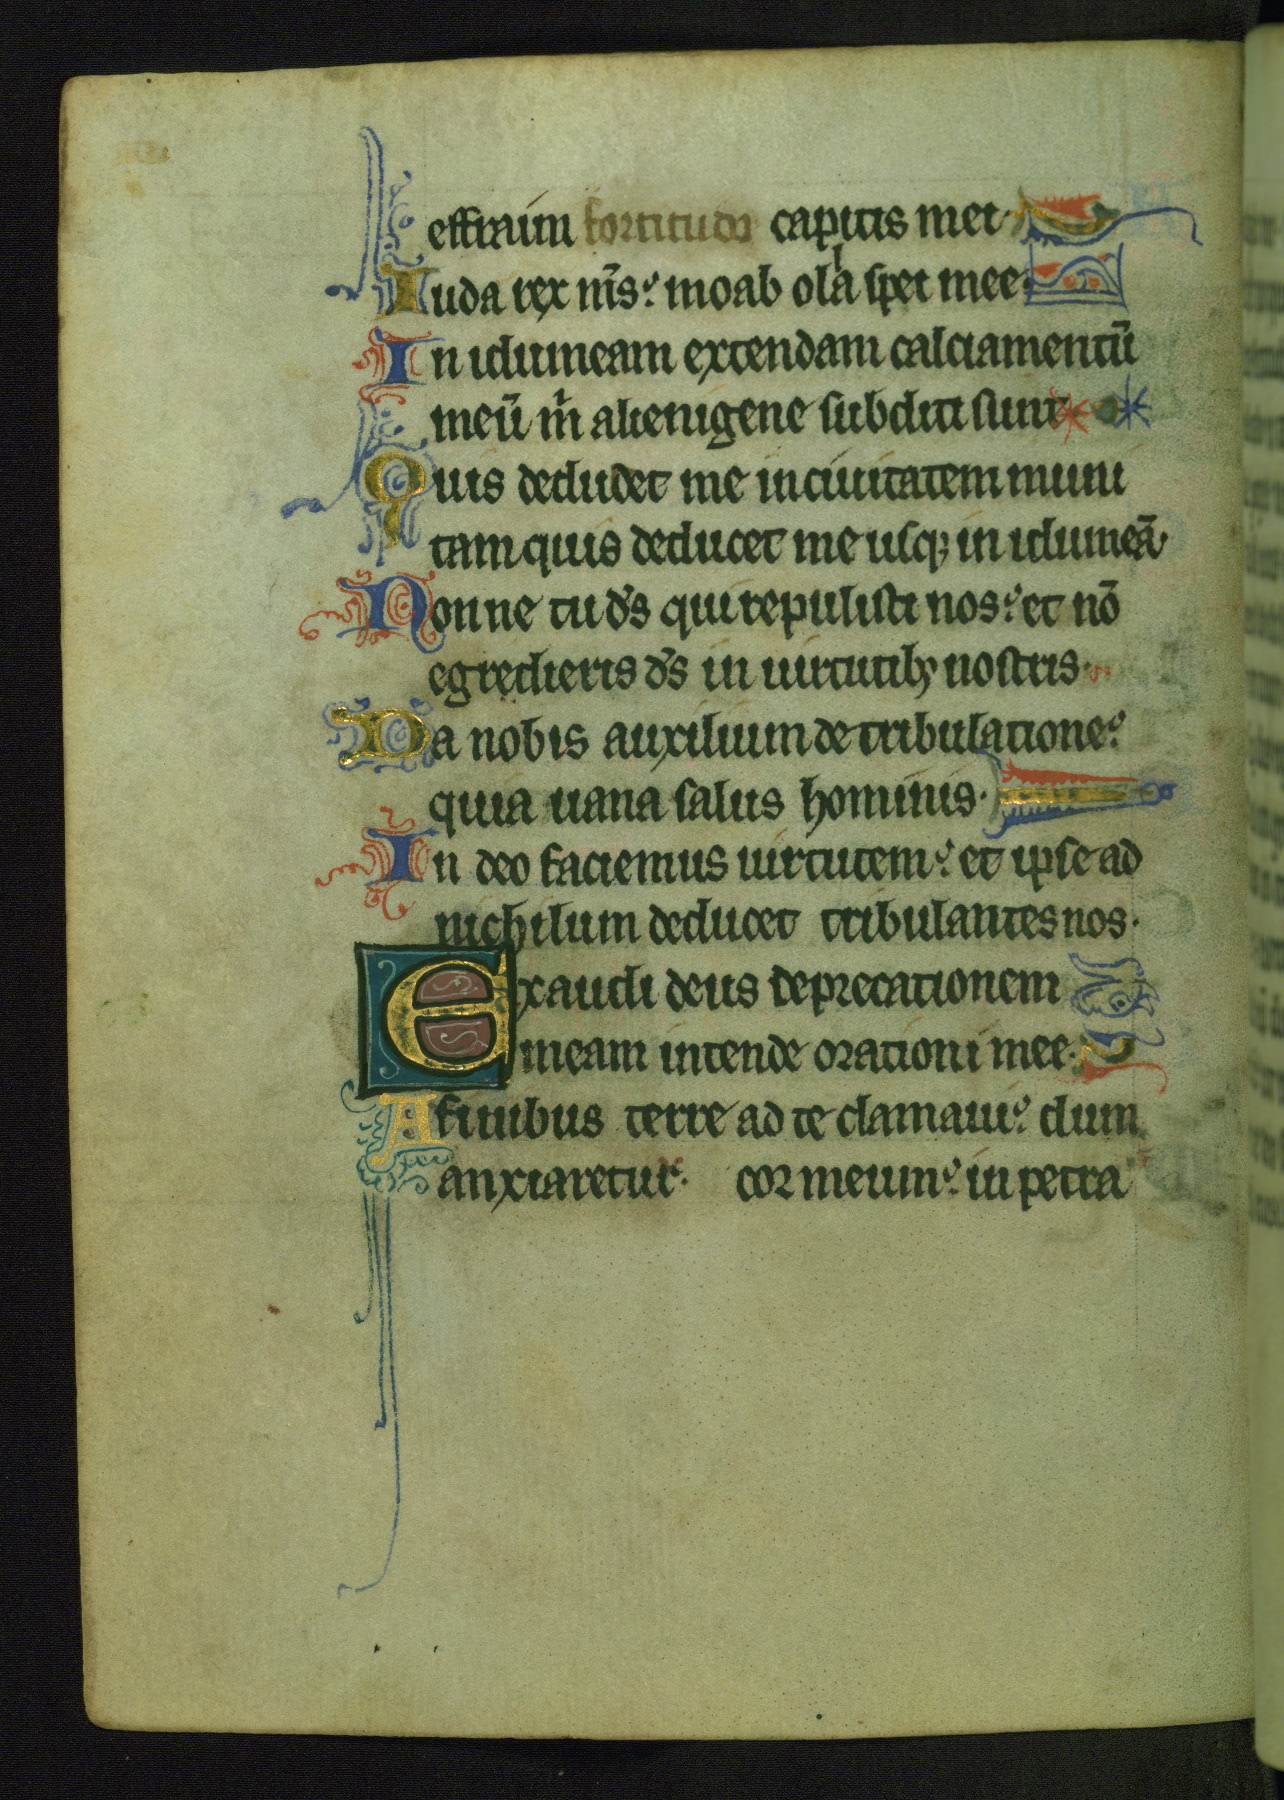 effraim fortitudo capitis mei.
Iuda rex m̄s: moab olla spei mee.
In idumeam extendam calciamentū
meū m̄ alienigene subditi sunt
Quis deducet me in ciuitatem muni
tam quis deducet me usq; in idumeā.
Nonne tu ds̄ qui repulisti nos: et nō
egredieris ds̄ in uirtutibȝ nostris.
Da nobis auxilium de tribulatione:
quia uana salus hominis.
In deo faciemus uirtutem: et ipse ad
nichilum deducet tribulantes nos.
Exaudi deus deprecationem
meam intende orationi mee.
A finibus terre ad te clamaui: dum
anxiaretur. cor meum: in petra